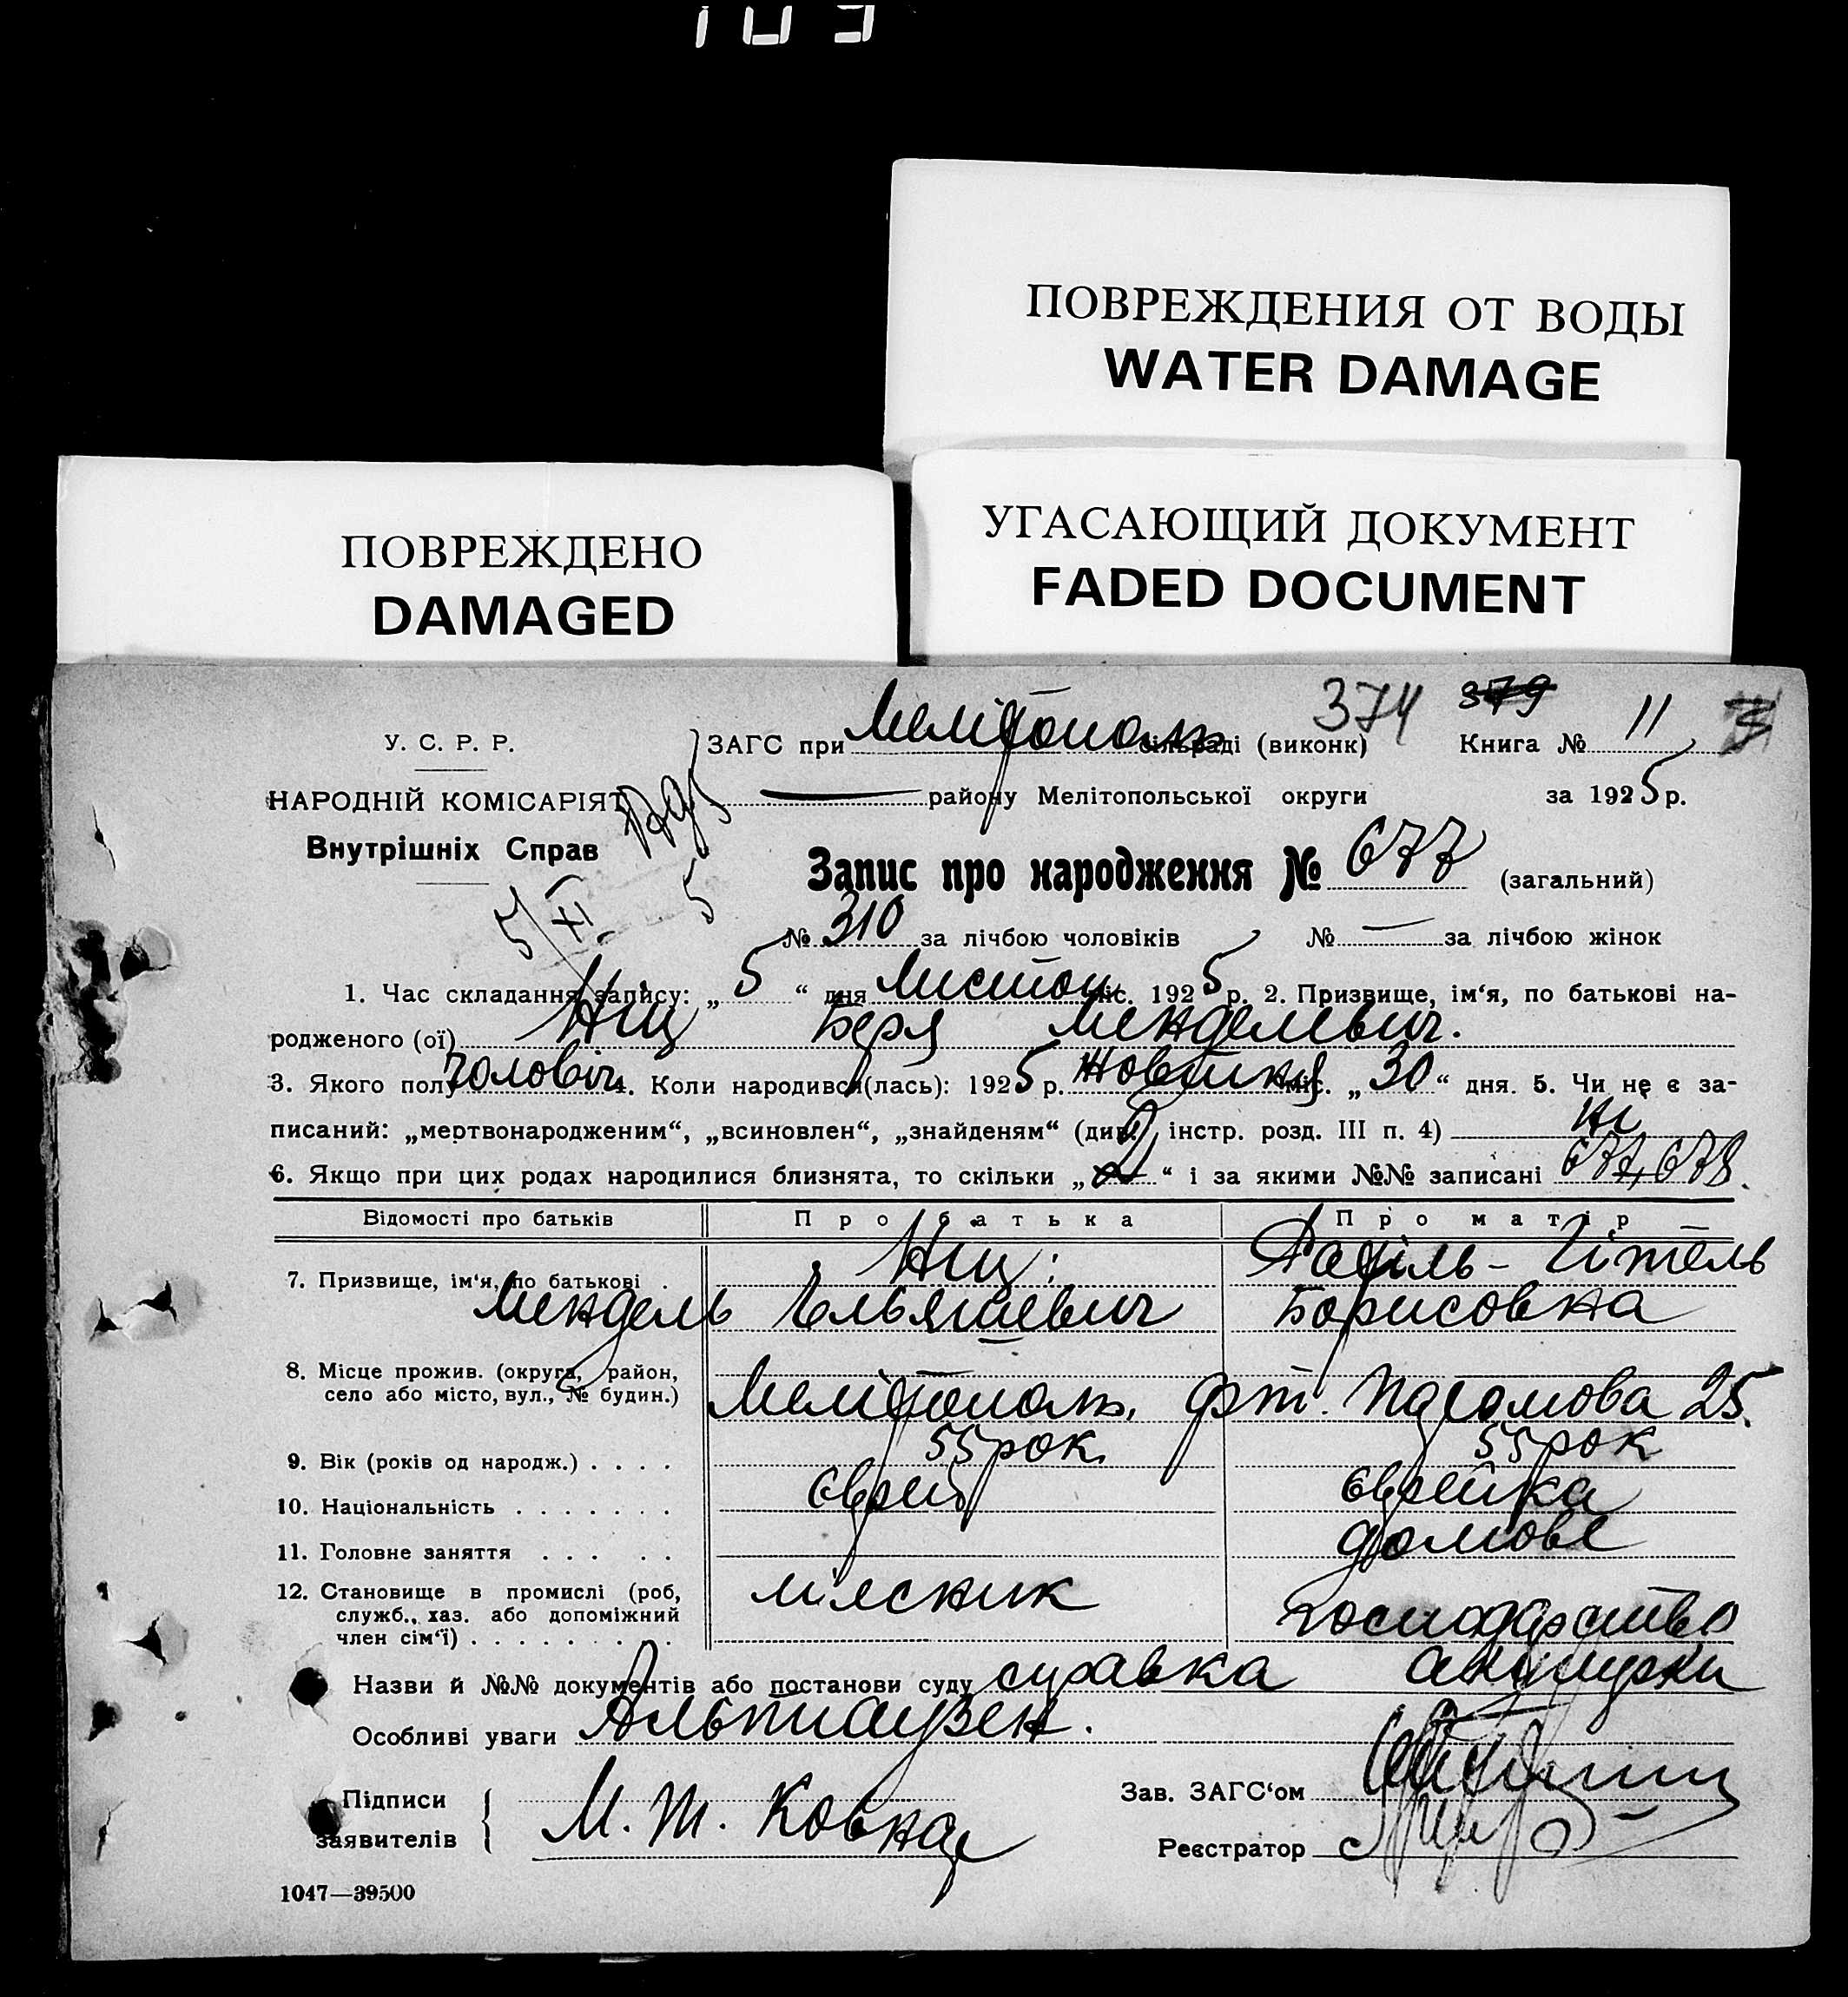 ПОВРЕЖДЕНИЯ ОТ ВОДЫ
WATER DAMAGE
ПОВРЕЖДЕНО
DAMAGED
УГАСАЮЩИЙ ДОКУМЕНТ
FADED DOCUMENT
374 379
У. С. Р. Р.
НАРОДНІЙ КОМІСАРІЯТ
Внутрішніх Справ
5/XI 5
ЗАГС при Мелітополь сільраді (виконк) Книга № 11
району Мелітопольської округи за 1925 р.
Запис про народження № 677 (загальний)
№ 310 за лічбою чоловіків № — за лічбою жінок
1. Час складання запису: „5“ дня Листоп міс. 1925 р. 2. Призвище, ім'я, по батькові на-
родженого (ої) Ниц Беря Менделевич.
3. Якого полу чоловіч 4. Коли народився (лась): 1925 р. Жовтня міс. „30“ дня. 5. Чи не є за-
писаний: „мертвонародженим“, „всиновлен“, „знайденям“ (див. інстр. розд. III п. 4) ні
6. Якщо при цих родах народилися близнята, то скільки „2“ і за якими №№ записані 677, 678.
Відомості про батьків Про батька Про матір
7. Призвище, ім'я, по батькові . Ниц: Рахіль-Гітель
Мендель Ельяшевич Борисовна
8. Місце прожив. (округа, район,
село або місто, вул., № будин.) Мелітополь, 25.
9. Вік (років од народж.) . . . . 55 рок. 55 рок
10. Національність . . . . . . . Єврей Єврейка
11. Головне заняття . . . . . домове
12. Становище в промислі (роб, мясник господарство
служб., хаз. або допоміжний
член сім'ї) . . . . . . . . .
Назви й №№ документів або постанови суду справка акушерки
Особливі уваги Альтгаузен.
Підписи
заявителів М. Т. Ковнац
Зав. ЗАГС'ом
Реєстратор
1047—39500